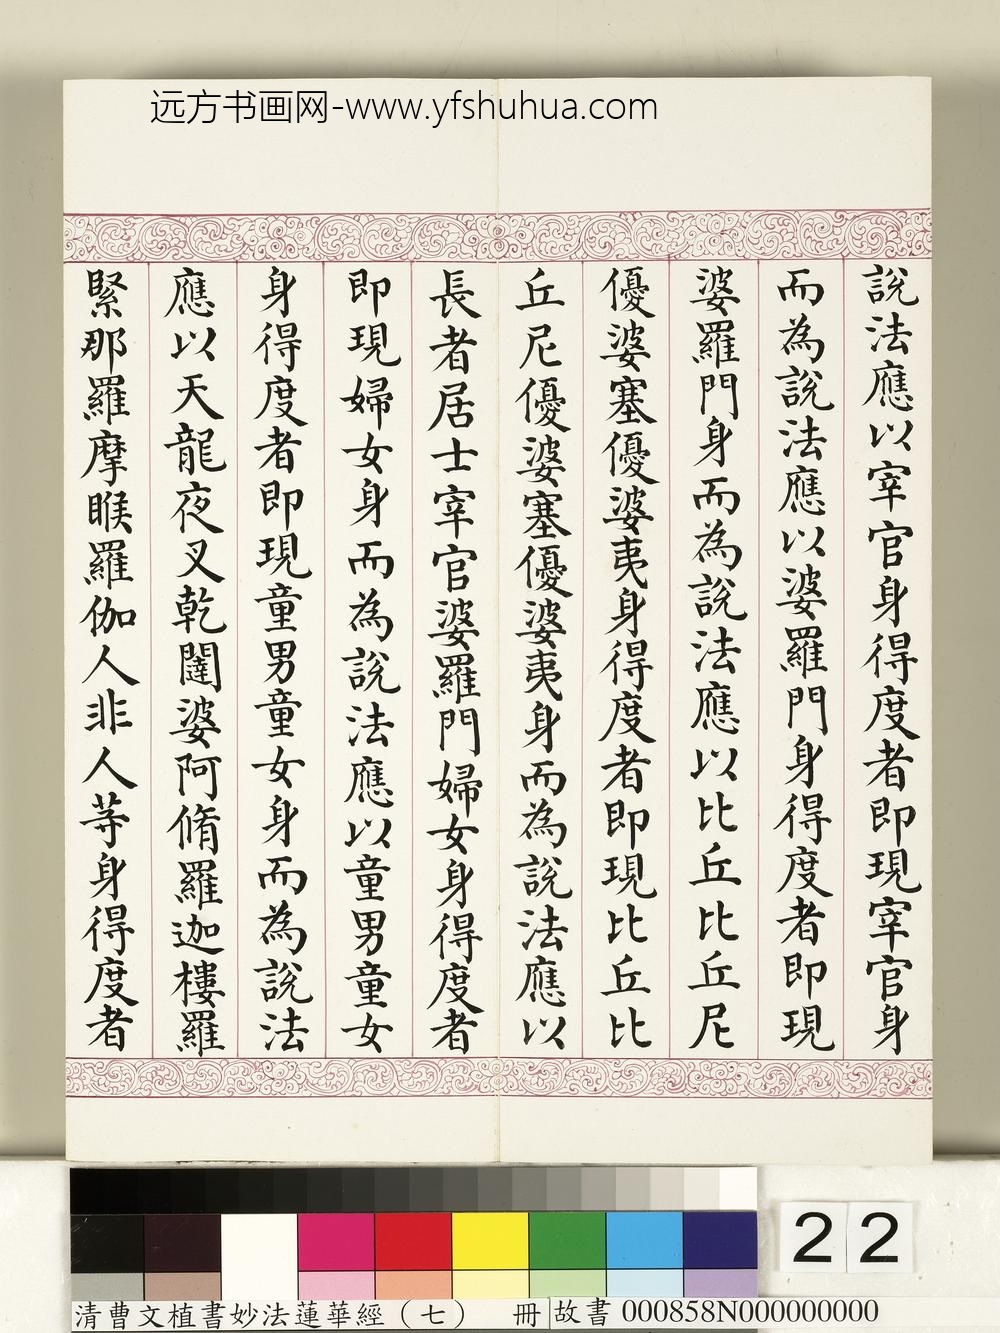 远方书画网-www.yfshuhua.com
說法應以宰官身得度者即現宰官身
而為說法應以婆羅門身得度者即現
婆羅門身而為說法應以比丘比丘尼
優婆塞優婆夷身得度者即現比丘比
丘尼優婆塞優婆夷身而為說法應以
長者居士宰官婆羅門婦女身得度者
即現婦女身而為說法應以童男童女
身得度者即現童男童女身而為說法
應以天龍夜叉乾闥婆阿脩羅迦樓羅
緊那羅摩睺羅伽人非人等身得度者
22
清曹文植書妙法蓮華經（七） 冊 故書 000858N000000000